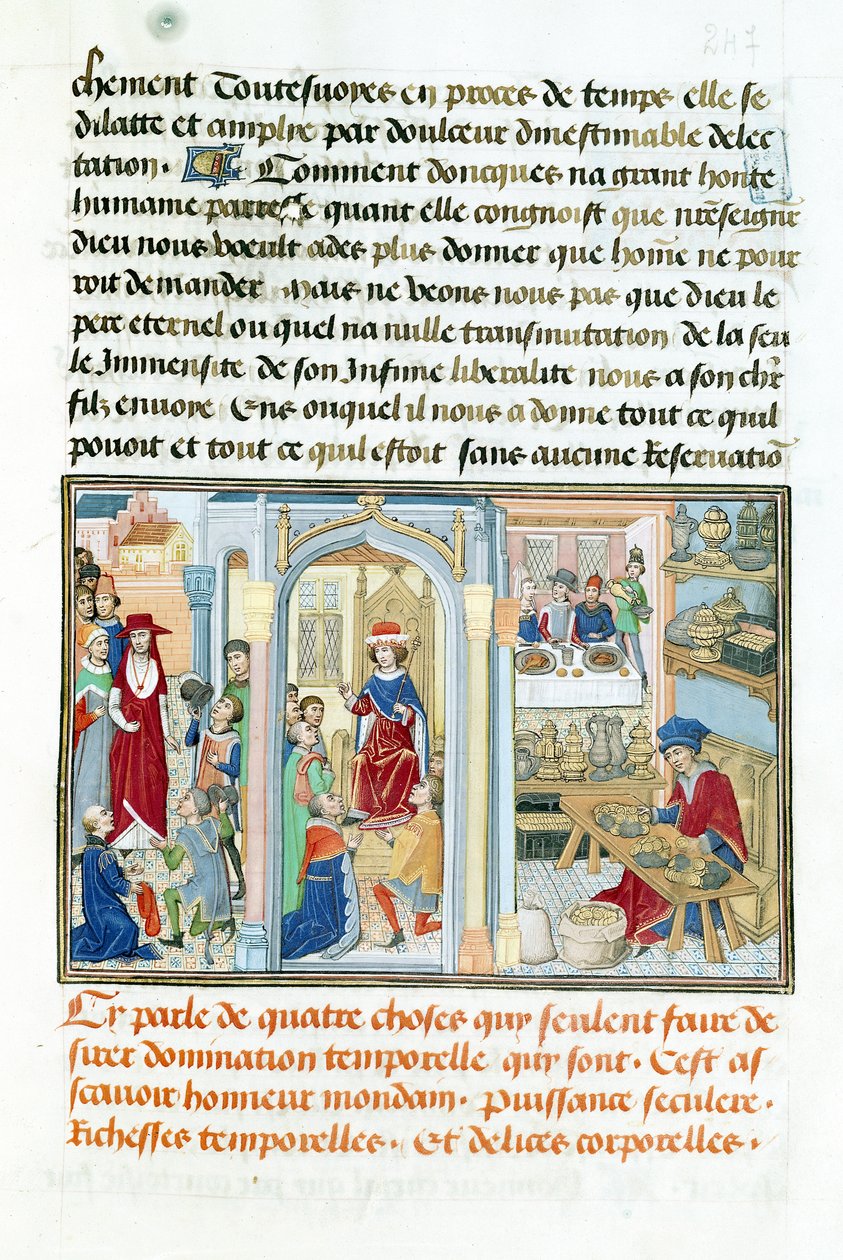 247
chement Toutesuoyes en proces de temps elle se
dilatte et amplye par doulceur dinestimable delec
tation. Comment doncques na grant honte
humaine quant elle congnoist que nrẽseignr̃
dieu nous voeult ades plus donner que hom̃e ne pour
roit demander Mais ne veons nous pas que dieu le
pere eternel ou quel na nulle transmutation de la seu
le Immensite de son Infinie liberalite nous a son chr̃
filz enuoye Ens ouquel il nous a donne tout ce quil
pouoit et tout ce quil estoit sans aucune Reseruatiõ
Cy parle de quatre choses quy seulent faire de
sirer domination temporelle quy sont. Cest as
scauoir honneur mondain. Puissance seculere.
Richesses temporelles. Et delices corporelles.